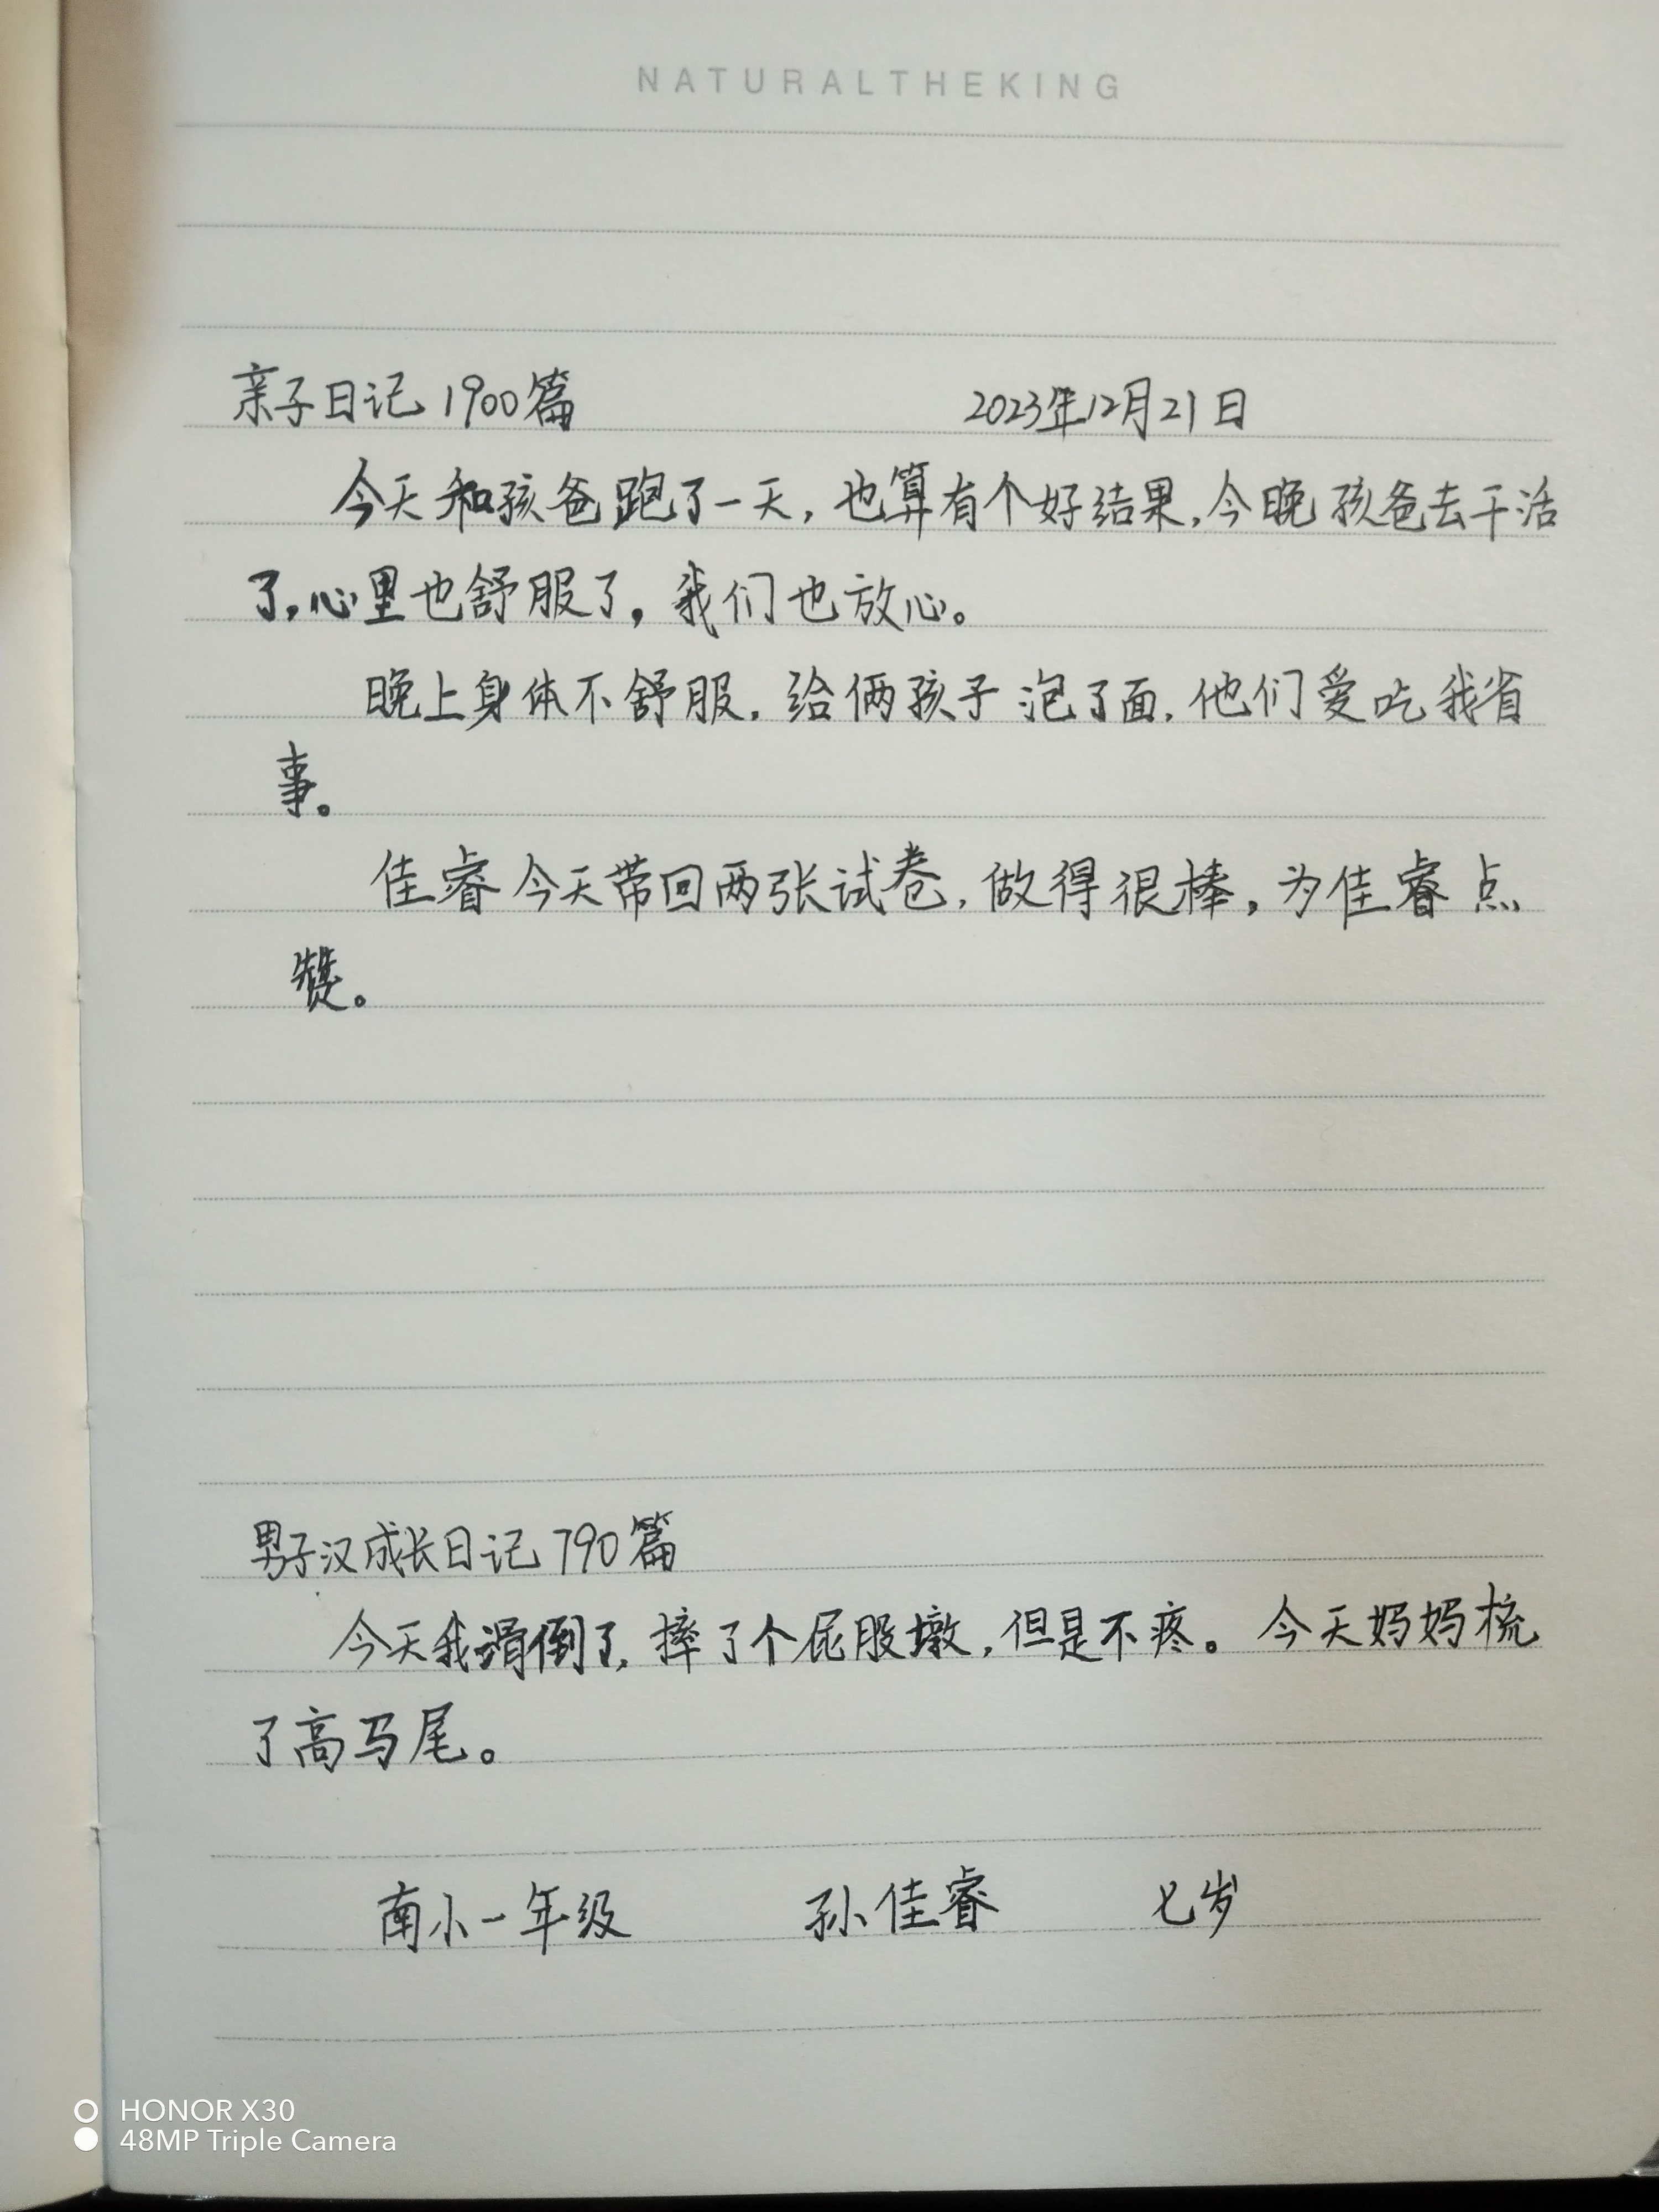 NATURALTHEKING
亲子日记 1900篇 2023年12月21日
今天和孩爸跑了一天,也算有个好结果,今晚孩爸去干活
了,心里也舒服了,我们也放心。
晚上身体不舒服,给俩孩子泡了面,他们爱吃我省
事。
佳睿今天带回两张试卷,做得很棒,为佳睿点
赞。
男子汉成长日记 790篇
今天我滑倒了,摔了个屁股墩,但是不疼。今天妈妈梳
了高马尾。
南小一年级 孙佳睿 七岁
HONOR X30
48MP Triple Camera